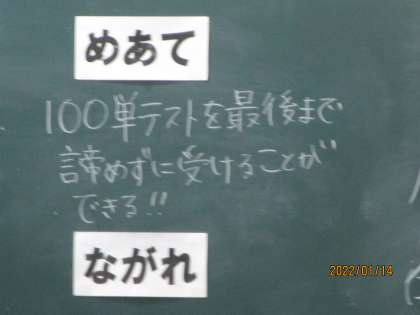 めあて
100単テストを最後まで
諦めずに受けることが
できる!!
ながれ
2022/01/14